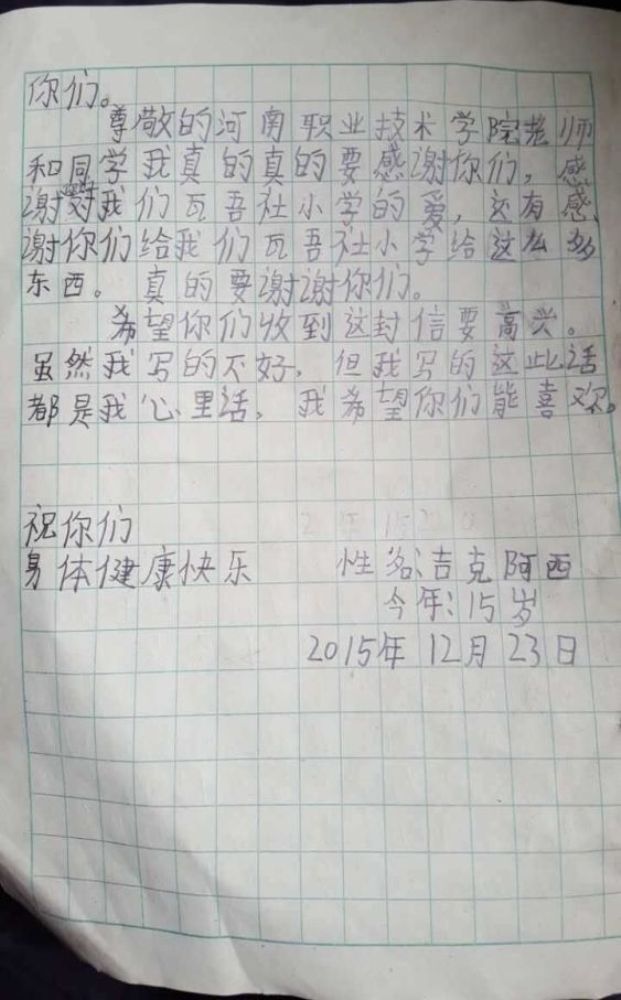 你们。
尊敬的河南职业技术学院老师
和同学我真的真的要感谢你们，感
谢对我们瓦吾社小学的爱，还有感
谢你们给我们瓦吾社小学给这么多
东西。真的要谢谢你们。
希望你们收到这封信要高兴。
虽然我写的不好，但我写的这些话
都是我心里话，我希望你们能喜欢。
祝你们
身体健康快乐 性名：吉克阿西
今年：15岁
2015年12月23日